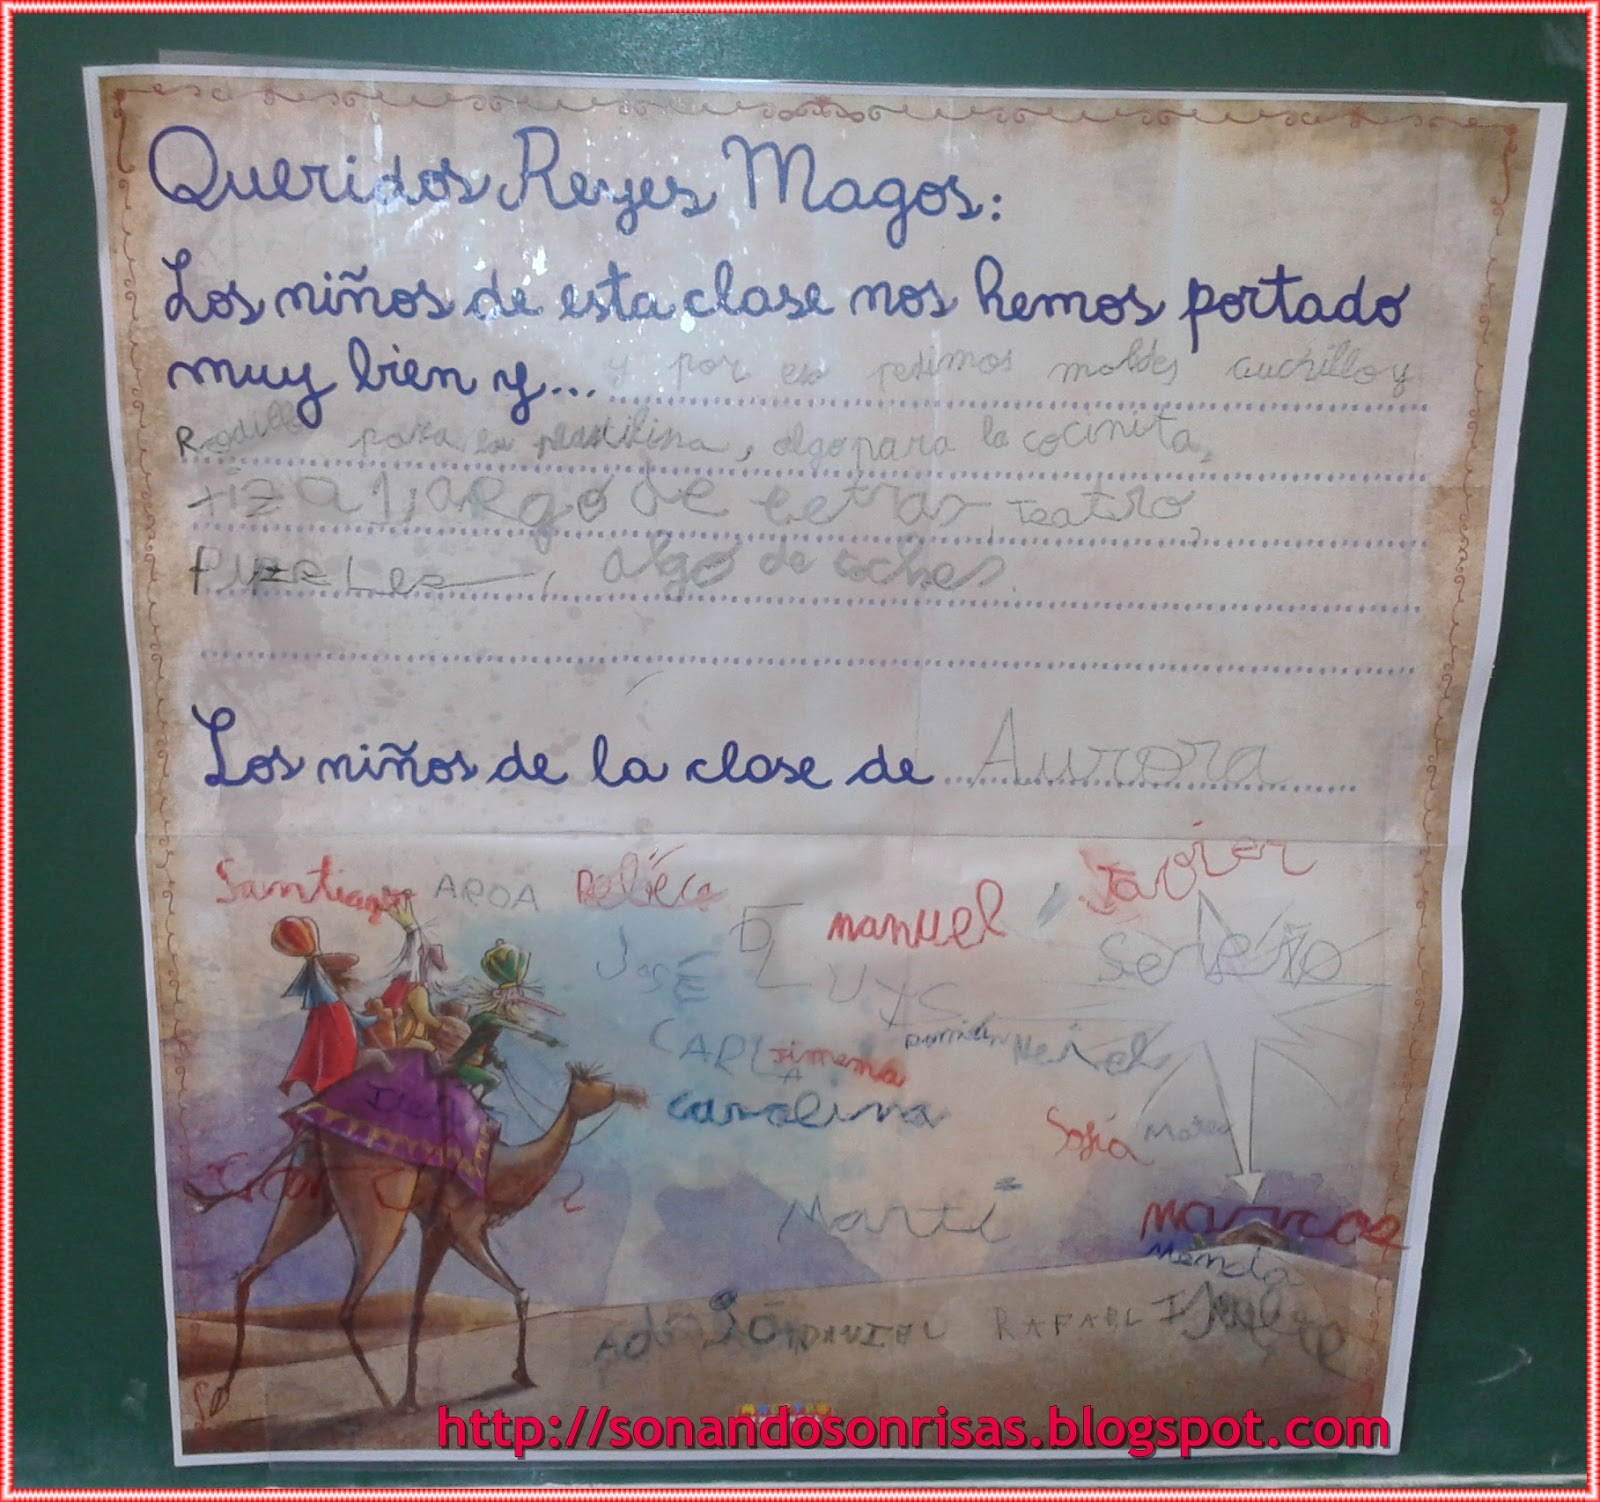 Queridos Reyes Magos:
Los niños de esta clase nos hemos portado
muy bien y... y por eso pedimos moldes cuchillo y
Rodillo para la plastilina, algo para la cocinita,
tiza, algo de letras, Teatro,
PUZZLes, algo de coches.
Los niños de la clase de Aurora
Santiago AROA Rebeca manuel Javier
José
LUYS
CARLA Jimena
carolina
Sofía Mateo
Martí
marcos
DANIEL RAFAEL
http://sonandosonrisas.blogspot.com